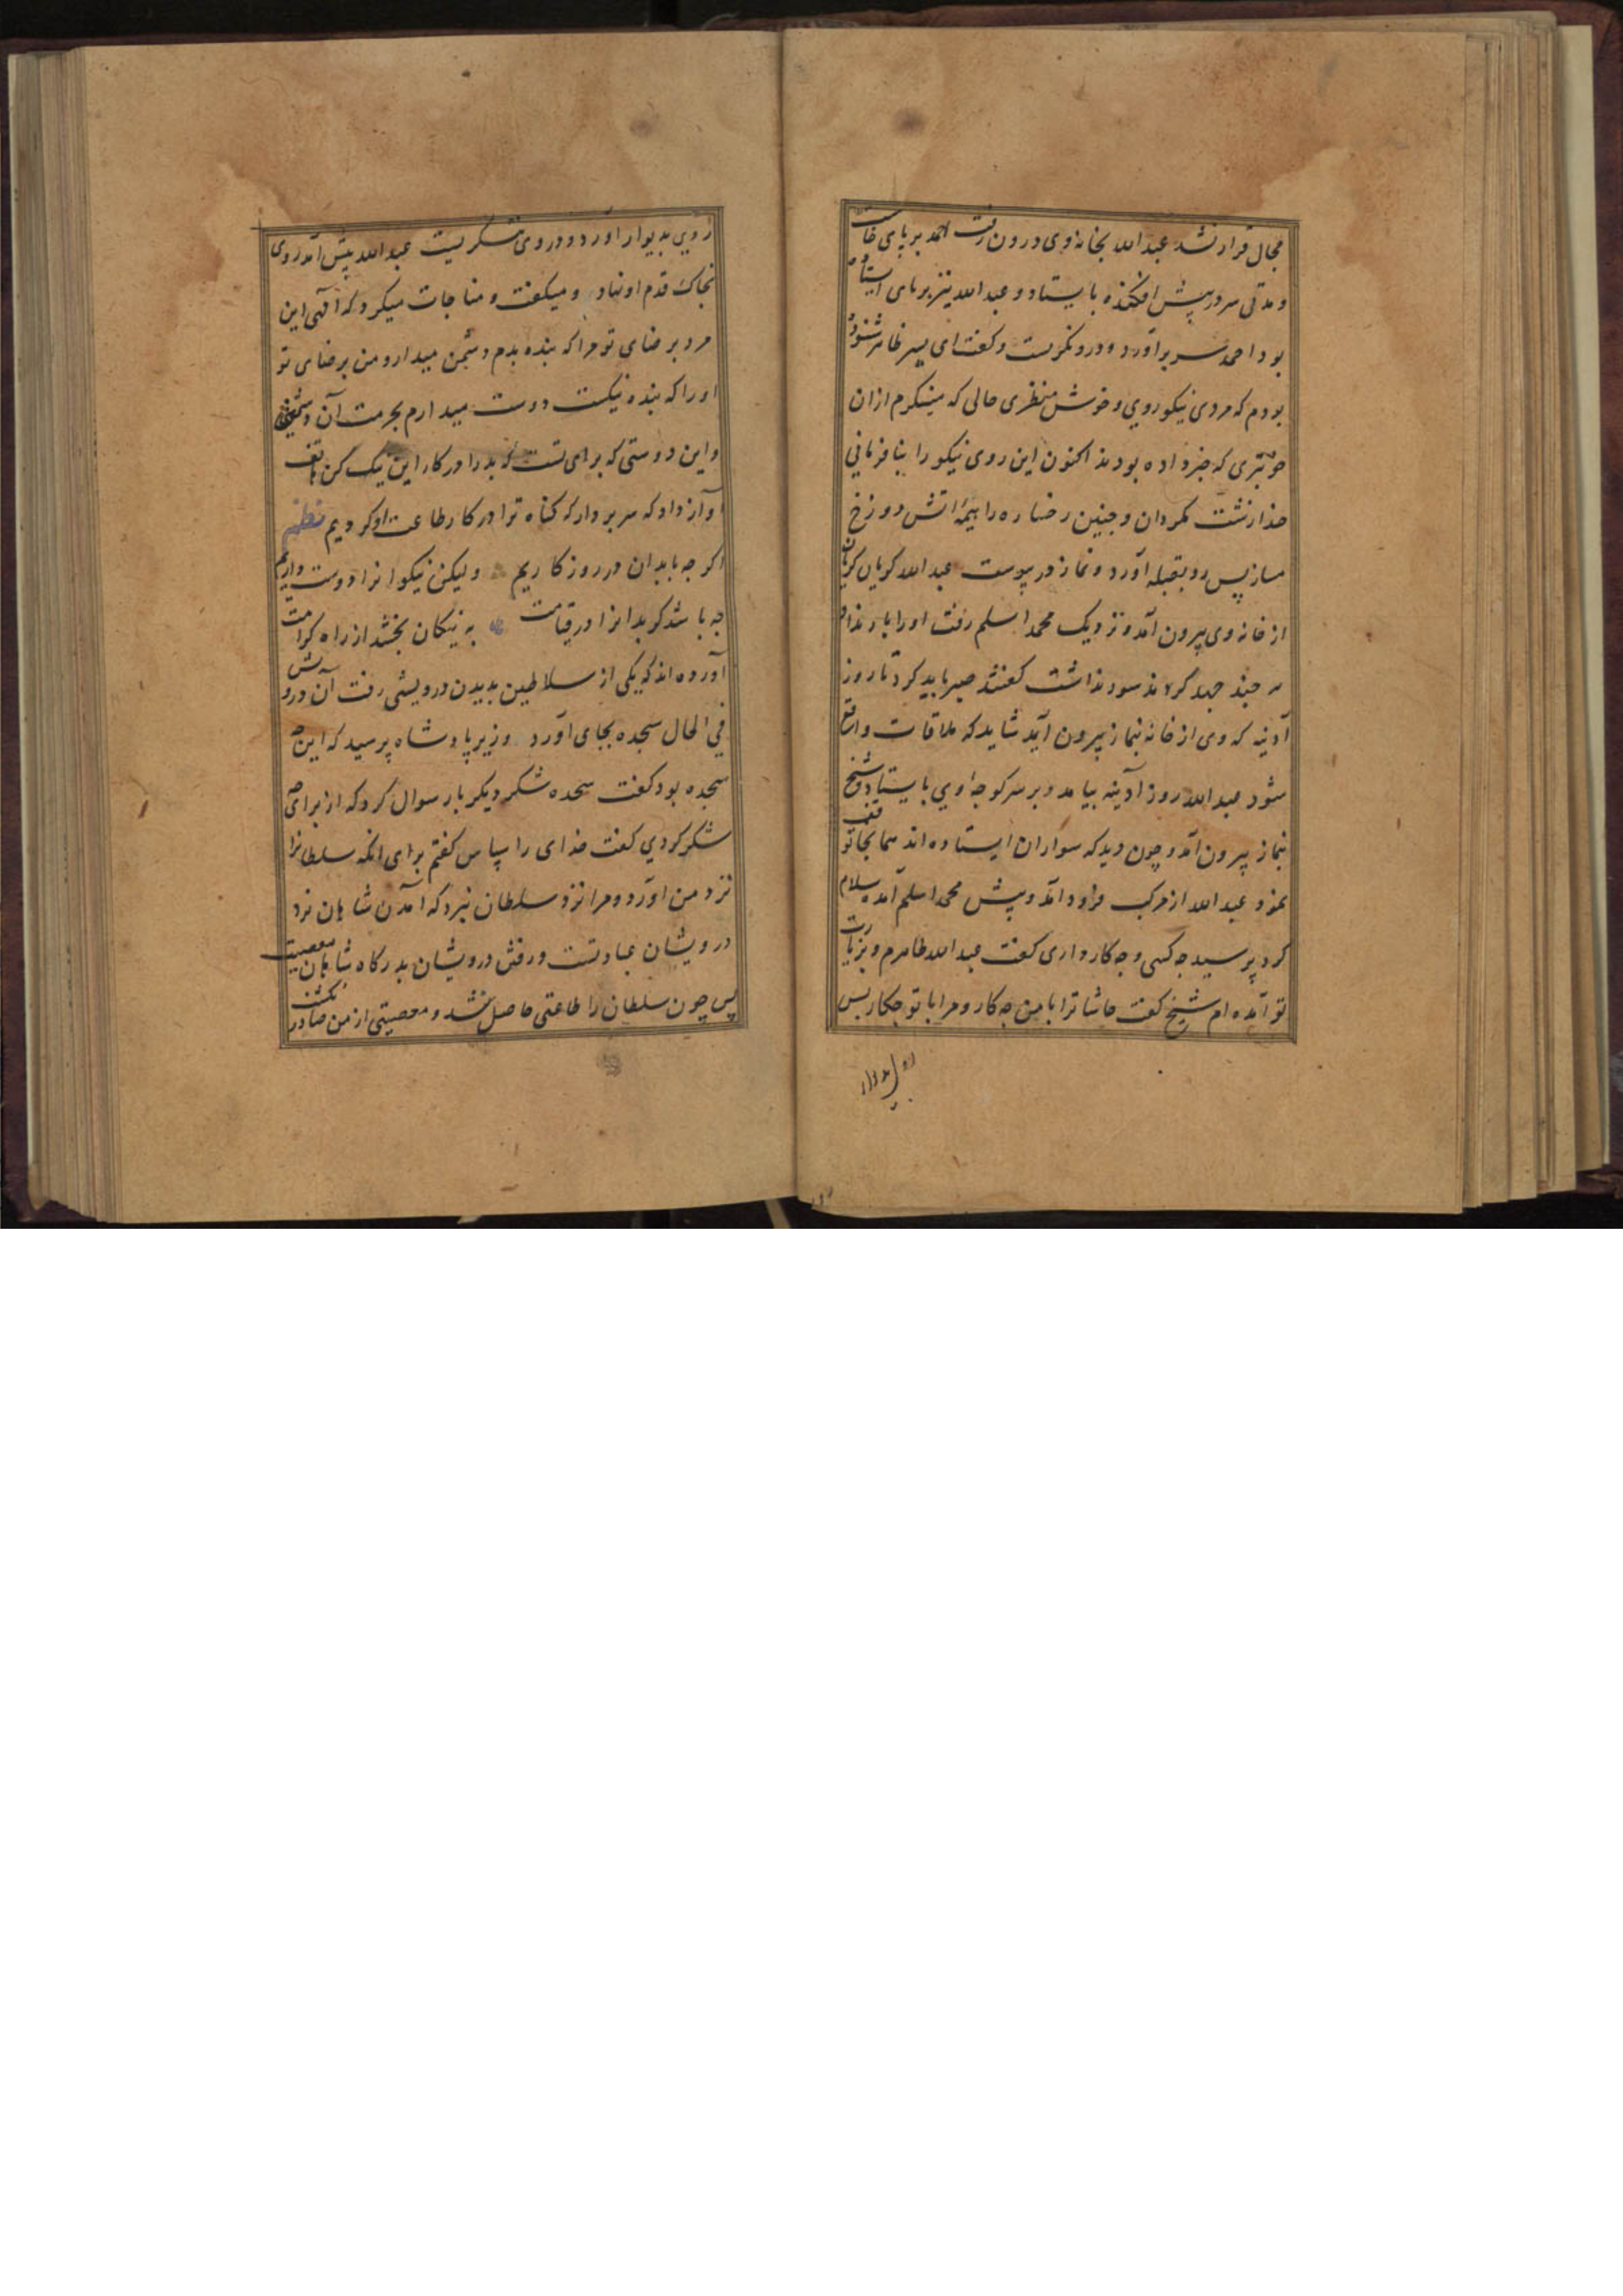 مجال قرار نشد عبد الله بخانه وی درون رفت احمد بر پای خاست
و مدتی سر در پیش افکنده بایستاد و عبد الله نیز بر پای ایستاده
بود احمد سر برآورد و درو نکریست و کفت ای پسر طاهر شنوده
بودم که مردی نیکو روی و خوش منظری حالی که مینکرم ازان
خوبتری که خبر داده بودند اکنون این روی نیکو را بنافرمانی
خدا زشت مکردان و چنین رخساره را هیمهٔ آتش دوزخ
مساز پس رو بقبله آورد و نماز در پیوست عبد الله کریان کریان
از خانه وی بیرون آمد و نزدیک محمد اسلم رفت اورا بار نداد
هر چند جهد کردند سود نداشت کفتند صبر باید کرد تا روز
آدینه که وی از خانه بنماز بیرون آید شاید که ملاقات واقع
شود عبد الله روز آدینه بیامد و بر سر کوچه اوی بایستاد و شیخ
بنماز بیرون آمد و چون دید که سواران ایستاده اند همانجا توقف
نمود عبد الله از مرکب فرود آمد و پیش محمد اسلم آمده سلام
کرد پرسید چه کسی و چه کار داری کفت عبد الله طاهرم و بزیارت
تو آمده ام شیخ کفت حاشا ترا با من چه کار و مرا با تو چکار پس
روی بدیوار
روی بدیوار آورد و در وی ننکریست عبد الله پیش آمد روی
بخاک قدم او نهاد و میکفت و مناجات میکرد که الهی این
مرد برضای تو مرا که بنده بدم دشمن میدارد و من برضای تو
اورا که بنده نیکست دوست میدارم بحرمت آن دشمنی
و این دوستی که برای تست که بد را در کار این نیک کن هاتف
آواز داد که سر بردار که کناه ترا در کار طاعت او کردیم نظم
اکر چه با بدان در روز کاریم ولیکن نیکوانرا دوست داریم
چه باشد کر بدانرا در قیامت به نیکان بخشد از راه کرامت
آورده اند که یکی از سلاطین بدیدن درویشی رفت آن درویش
فی الحال سجده بجای آورد وزیر پادشاه پرسید که این چه
سجده بود کفت سجده شکر دیکر بار سوال کرد که از برای چه
شکر کردی کفت خدای را سپاس کفتم برای انکه سلطانرا
نزد من آورد و مرا نزد سلطان نبرد که آمدن شاهان نزد
درویشان عبادتست و رفتن درویشان بدرکاه شاهان معصیت
پس چون سلطان را طاعتی حاصل شد و معصیتی از من صادر نکشت